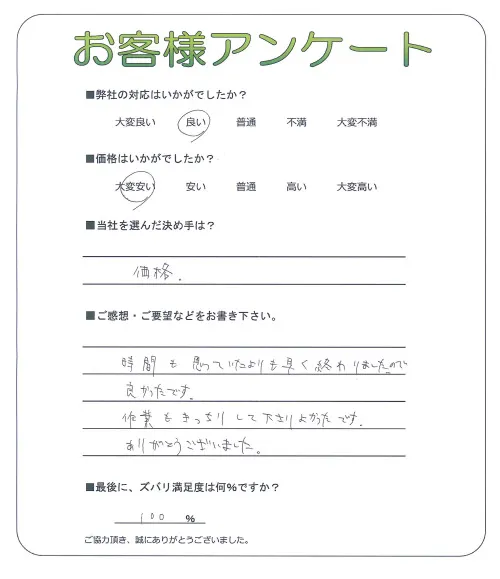 お客様アンケート
■弊社の対応はいかがでしたか？
大変良い 良い 普通 不満 大変不満
■価格はいかがでしたか？
大変安い 安い 普通 高い 大変高い
■当社を選んだ決め手は？
価格.
■ご感想・ご要望などをお書き下さい。
時間も思っていたよりも早く終わりましたので
良かったです。
作業もきっちりして下さりよかったです.
ありがとうございました。
■最後に、ズバリ満足度は何%ですか？
100 %
ご協力頂き、誠にありがとうございました。